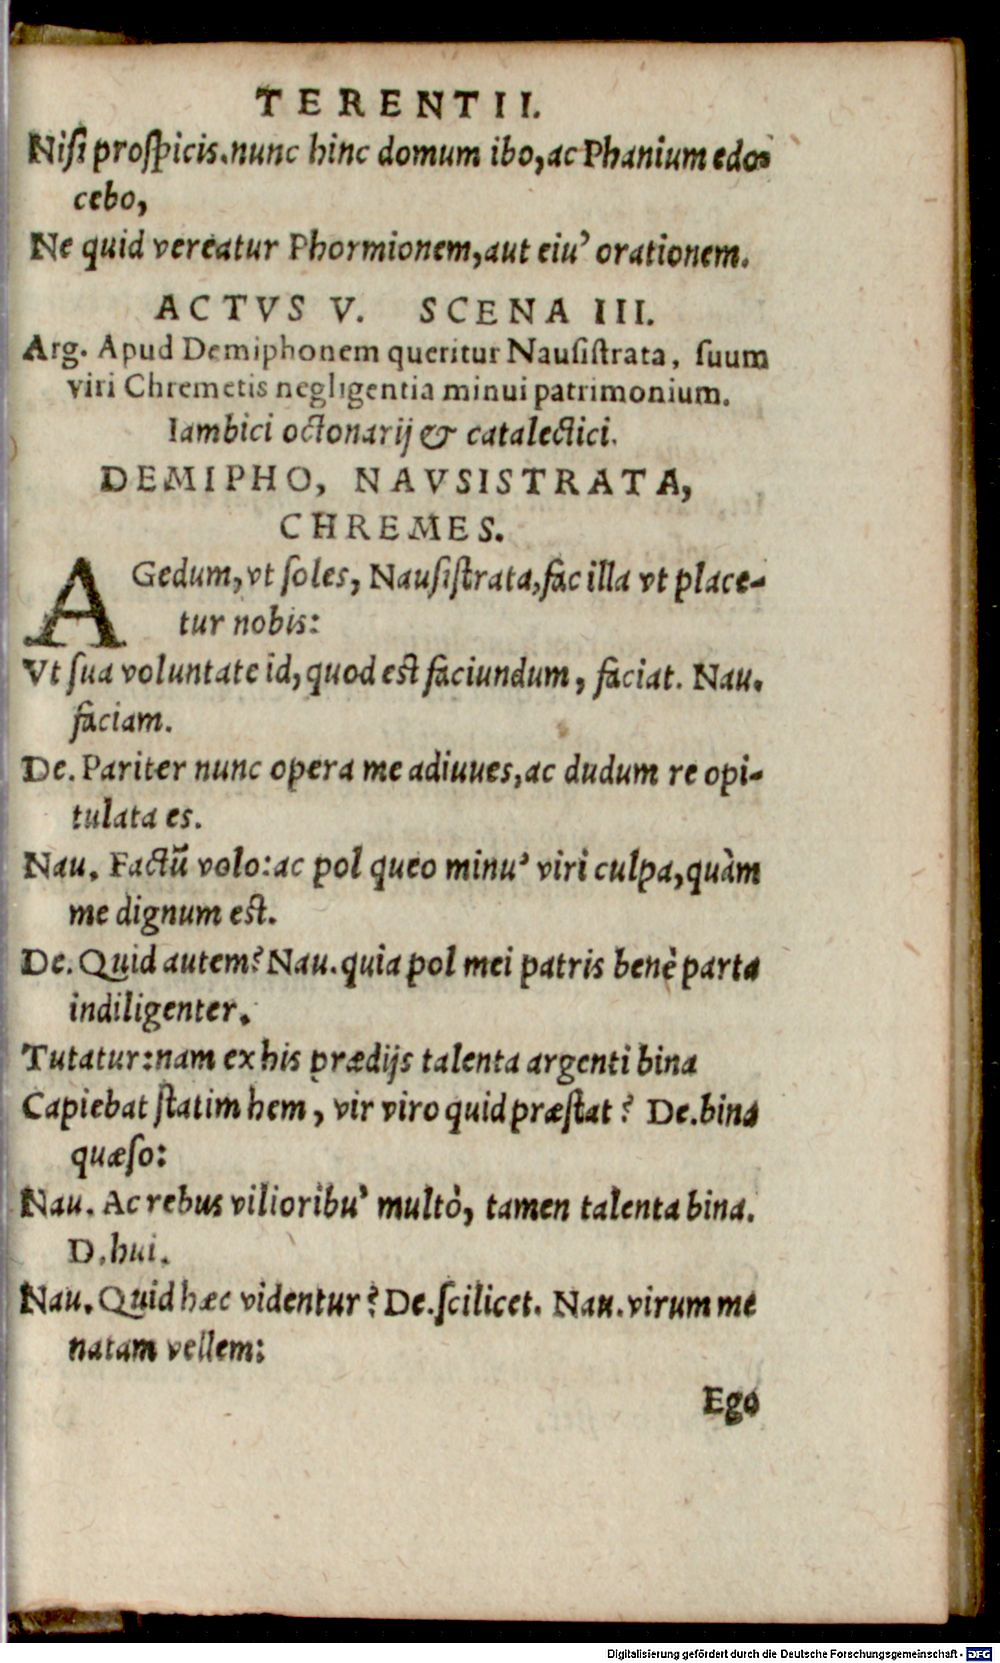 TERENTII.
Niſi proſpicis. nunc hinc domum ibo, ac Phanium edo-
cebo,
Ne quid vereatur Phormionem, aut eiu' orationem.
ACTVS V. SCENA III.
Arg. Apud Demiphonem queritur Nauſiſtrata, ſuum
viri Chremetis negligentia minui patrimonium.
Iambici octonarij & catalectici.
DEMIPHO, NAVSISTRATA,
CHREMES.
AGedum, vt ſoles, Nauſiſtrata, fac illa vt place-
tur nobis:
Vt ſua voluntate id, quod eſt faciundum, faciat. Nau.
faciam.
De. Pariter nunc opera me adiuues, ac dudum re opi-
tulata es.
Nau. Factũ volo: ac pol queo minu' viri culpa, quàm
me dignum eſt.
De. Quid autem? Nau. quia pol mei patris benè parta
indiligenter.
Tutatur: nam ex his prædijs talenta argenti bina
Capiebat ſtatim hem, vir viro quid præſtat? De. bina
quæſo:
Nau. Ac rebus vilioribu' multò, tamen talenta bina.
D. hui.
Nau. Quid hæc videntur? De. ſcilicet. Nau. virum me
natam vellem:
Ego
Digitalisierung gefördert durch die Deutsche Forschungsgemeinschaft - DFG